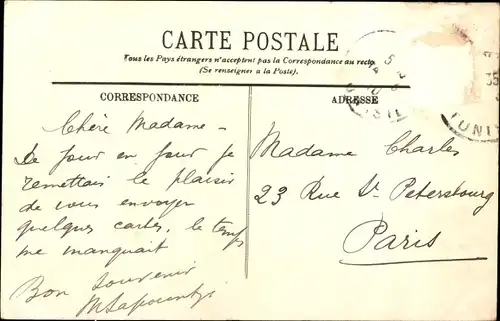 CARTE POSTALE
Tous les Pays étrangers n'acceptent pas la Correspondance au recto
(Se renseigner à la Poste).
CORRESPONDANCE
ADRESSE
Chère Madame -
De jour en jour je
remettais le plaisir
de vous envoyer
quelques cartes, le temps
me manquait
Bon souvenir
Madame Charles
23 Rue St Petersbourg
Paris